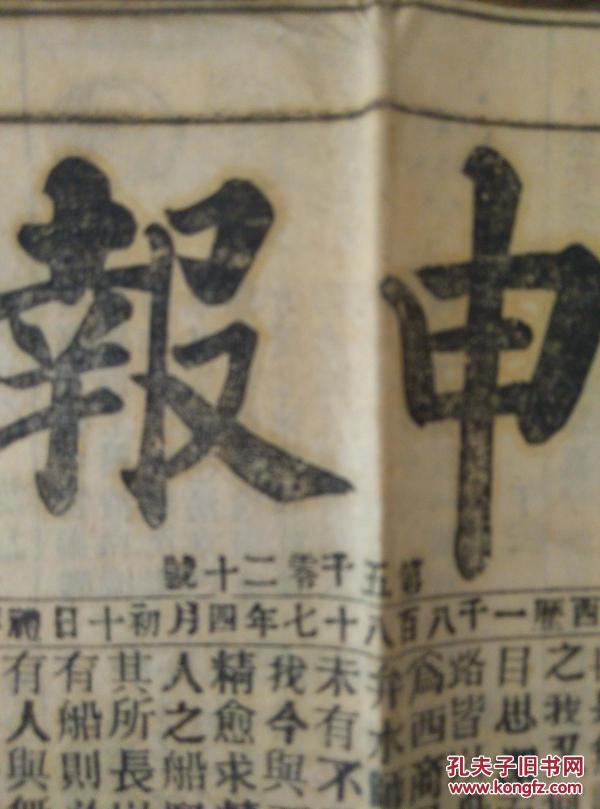 申報
第五千零二十號
西曆一千八百八十七年四月初十日禮
之我
目思
路皆
爲西商
弁水師
未有不
我今與
精愈求精
人之船
其所長
有船則
有人與無
孔夫子旧书网
KONGFZ.COM